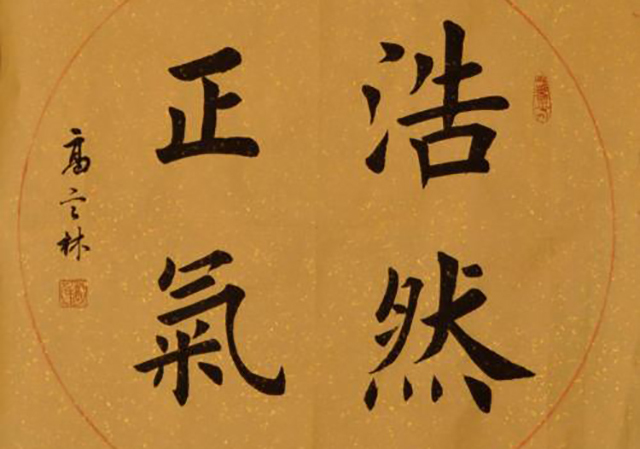 浩然
正氣
高云林